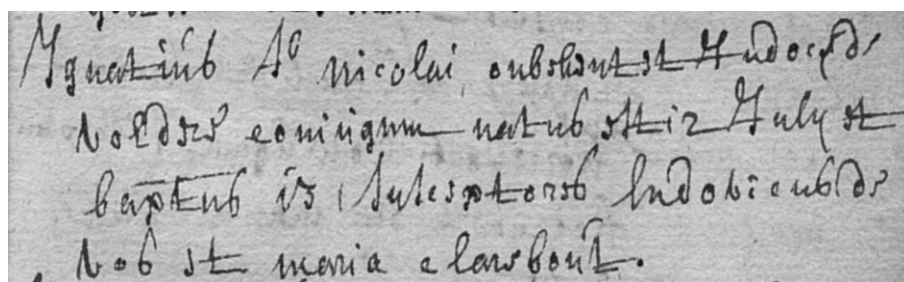 Ignatius fs nicolai et Judocæ de
volder coniugum natus est 12 July et
baptus 13 susceptores ludovicus de
vos et maria clarebout.